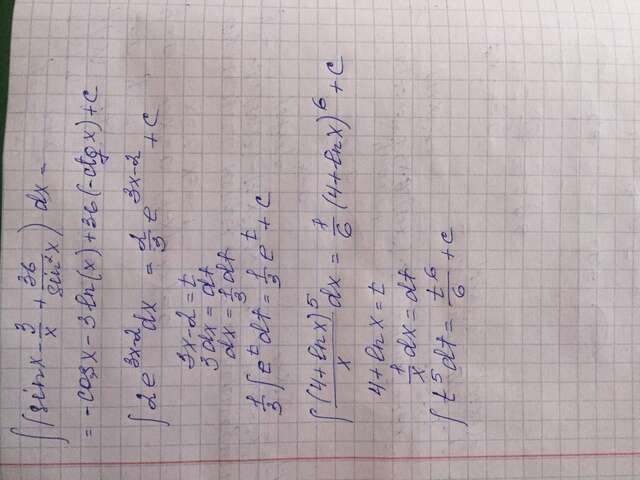 ∫(sinx - 3/x + 36/sin²x) dx =
= -cosx - 3 ln(x) + 36(-ctgx) + C
∫2e^(3x-2) dx = 2/3 e^(3x-2) + C
3x-2=t
3dx=dt
dx=1/3 dt
1/3 ∫e^t dt = 1/3 e^t + C
∫(4+lnx)^5/x dx = 1/6 (4+lnx)^6 + C
4+lnx=t
1/x dx=dt
∫t^5 dt = t^6/6 + C